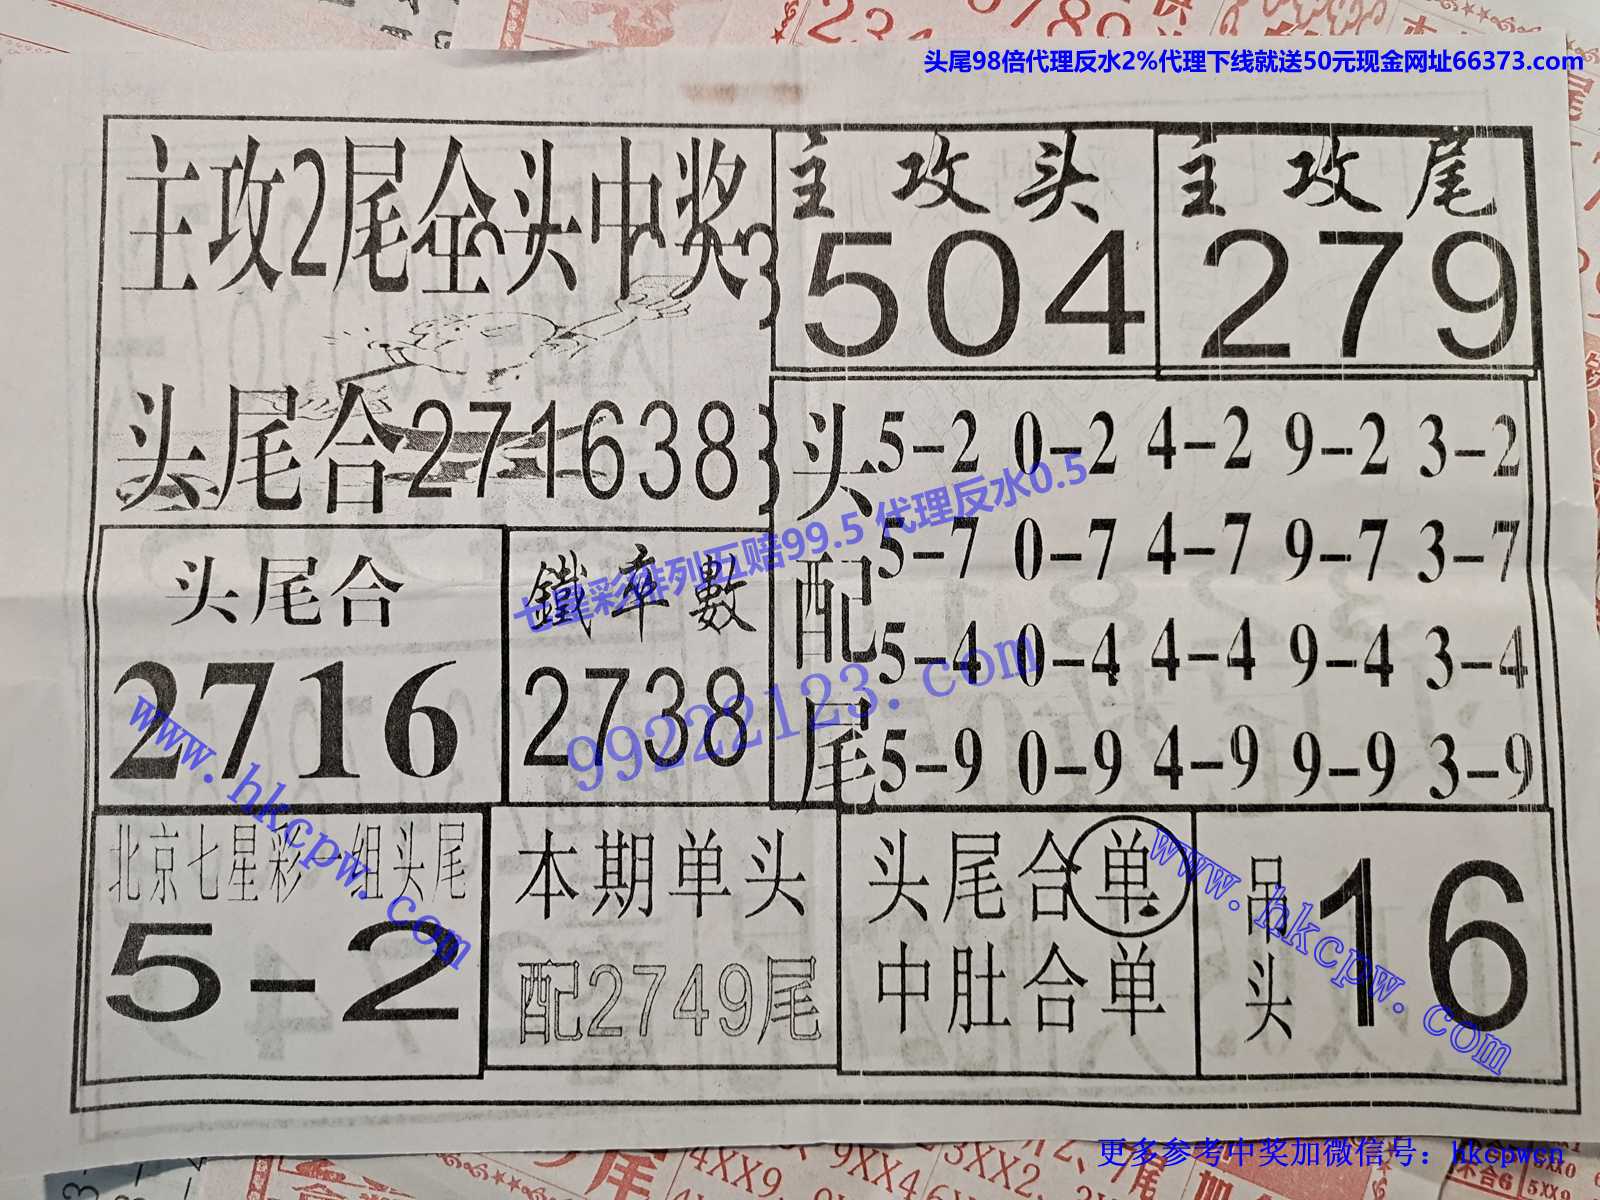 头尾98倍代理反水2%代理下线就送50元现金网址66373.com
主攻2尾全头中奖
主攻头
504
主攻尾
279
头尾合271638
头配尾
5-2 0-2 4-2 9-2 3-2
5-7 0-7 4-7 9-7 3-7
5-4 0-4 4-4 9-4 3-4
5-9 0-9 4-9 9-9 3-9
七星彩排列五赔99.5 代理反水0.5
99222123.com
头尾合
2716
鐵率數
2738
www.hkcpw.com
北京七星彩一组头尾
5-2
本期单头
配2749尾
头尾合单
中肚合单
吊头
16
www.hkcpw.com
更多参考中奖加微信号：hkcpwcn